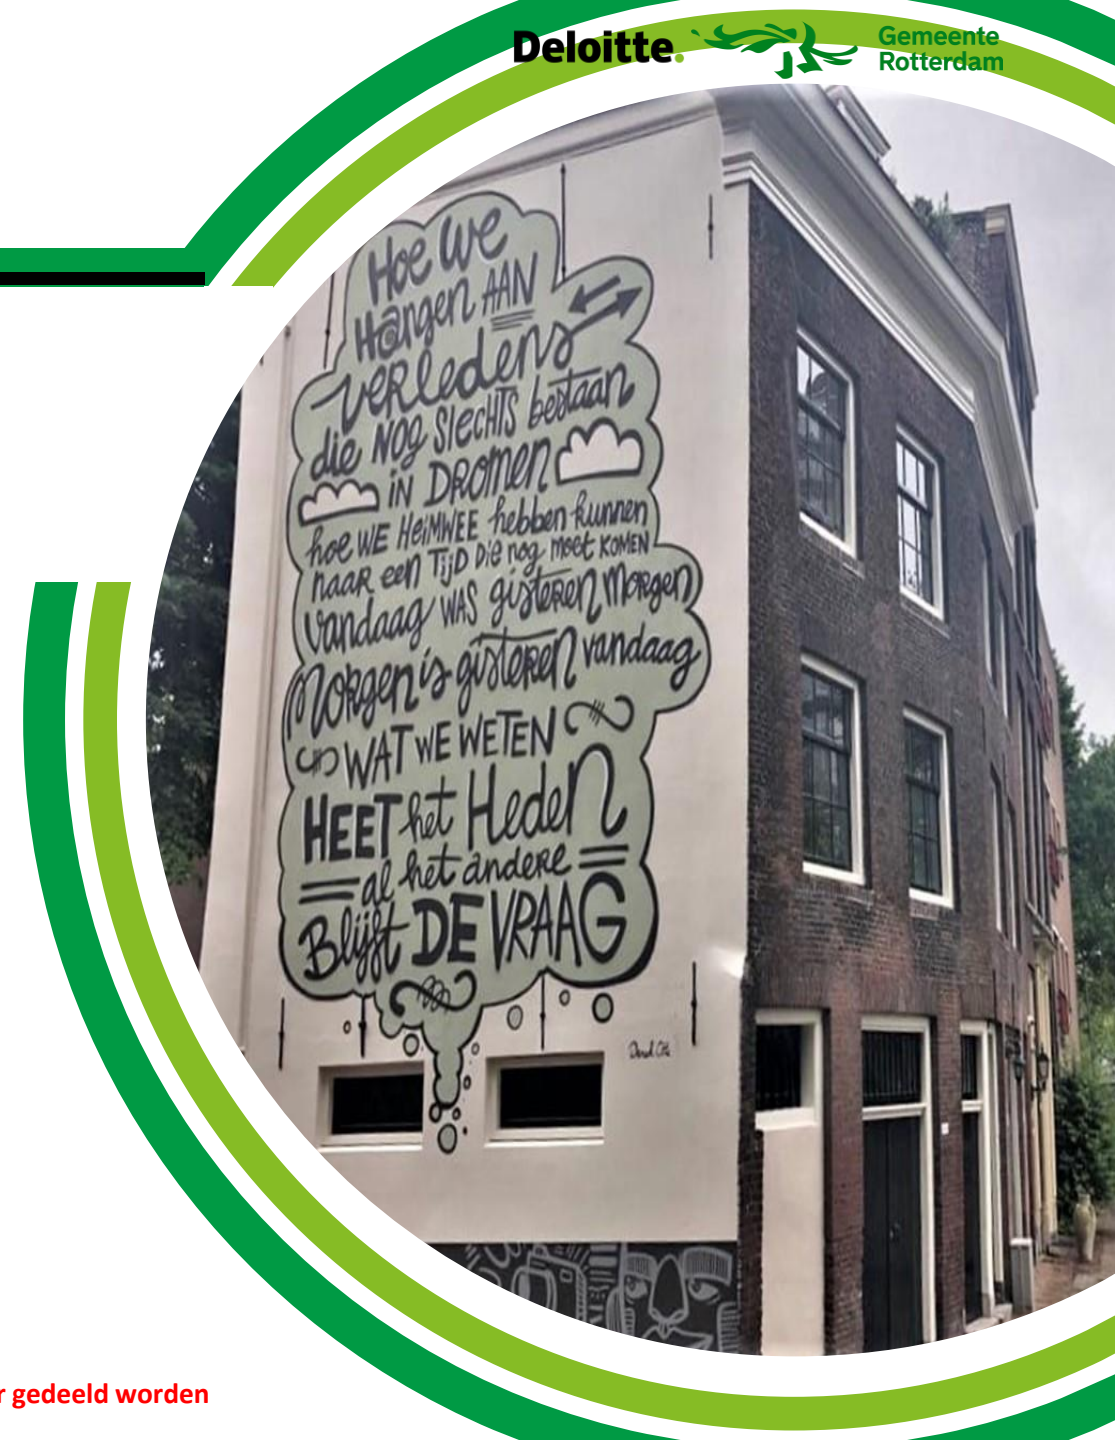 Deloitte.
Gemeente
Rotterdam
Hoe we
Hangen AAN
verledens
die NOG slechts bestaan
IN DROMEN
hoe WE HEIMWEE hebben kunnen
naar een TijD Die nog moet KOMEN
vandaag WAS gisteren morgen
Morgen is gisteren vandaag
WAT WE WETEN
HEET het Heden
al het andere
Blijft DE VRAAG
r gedeeld worden